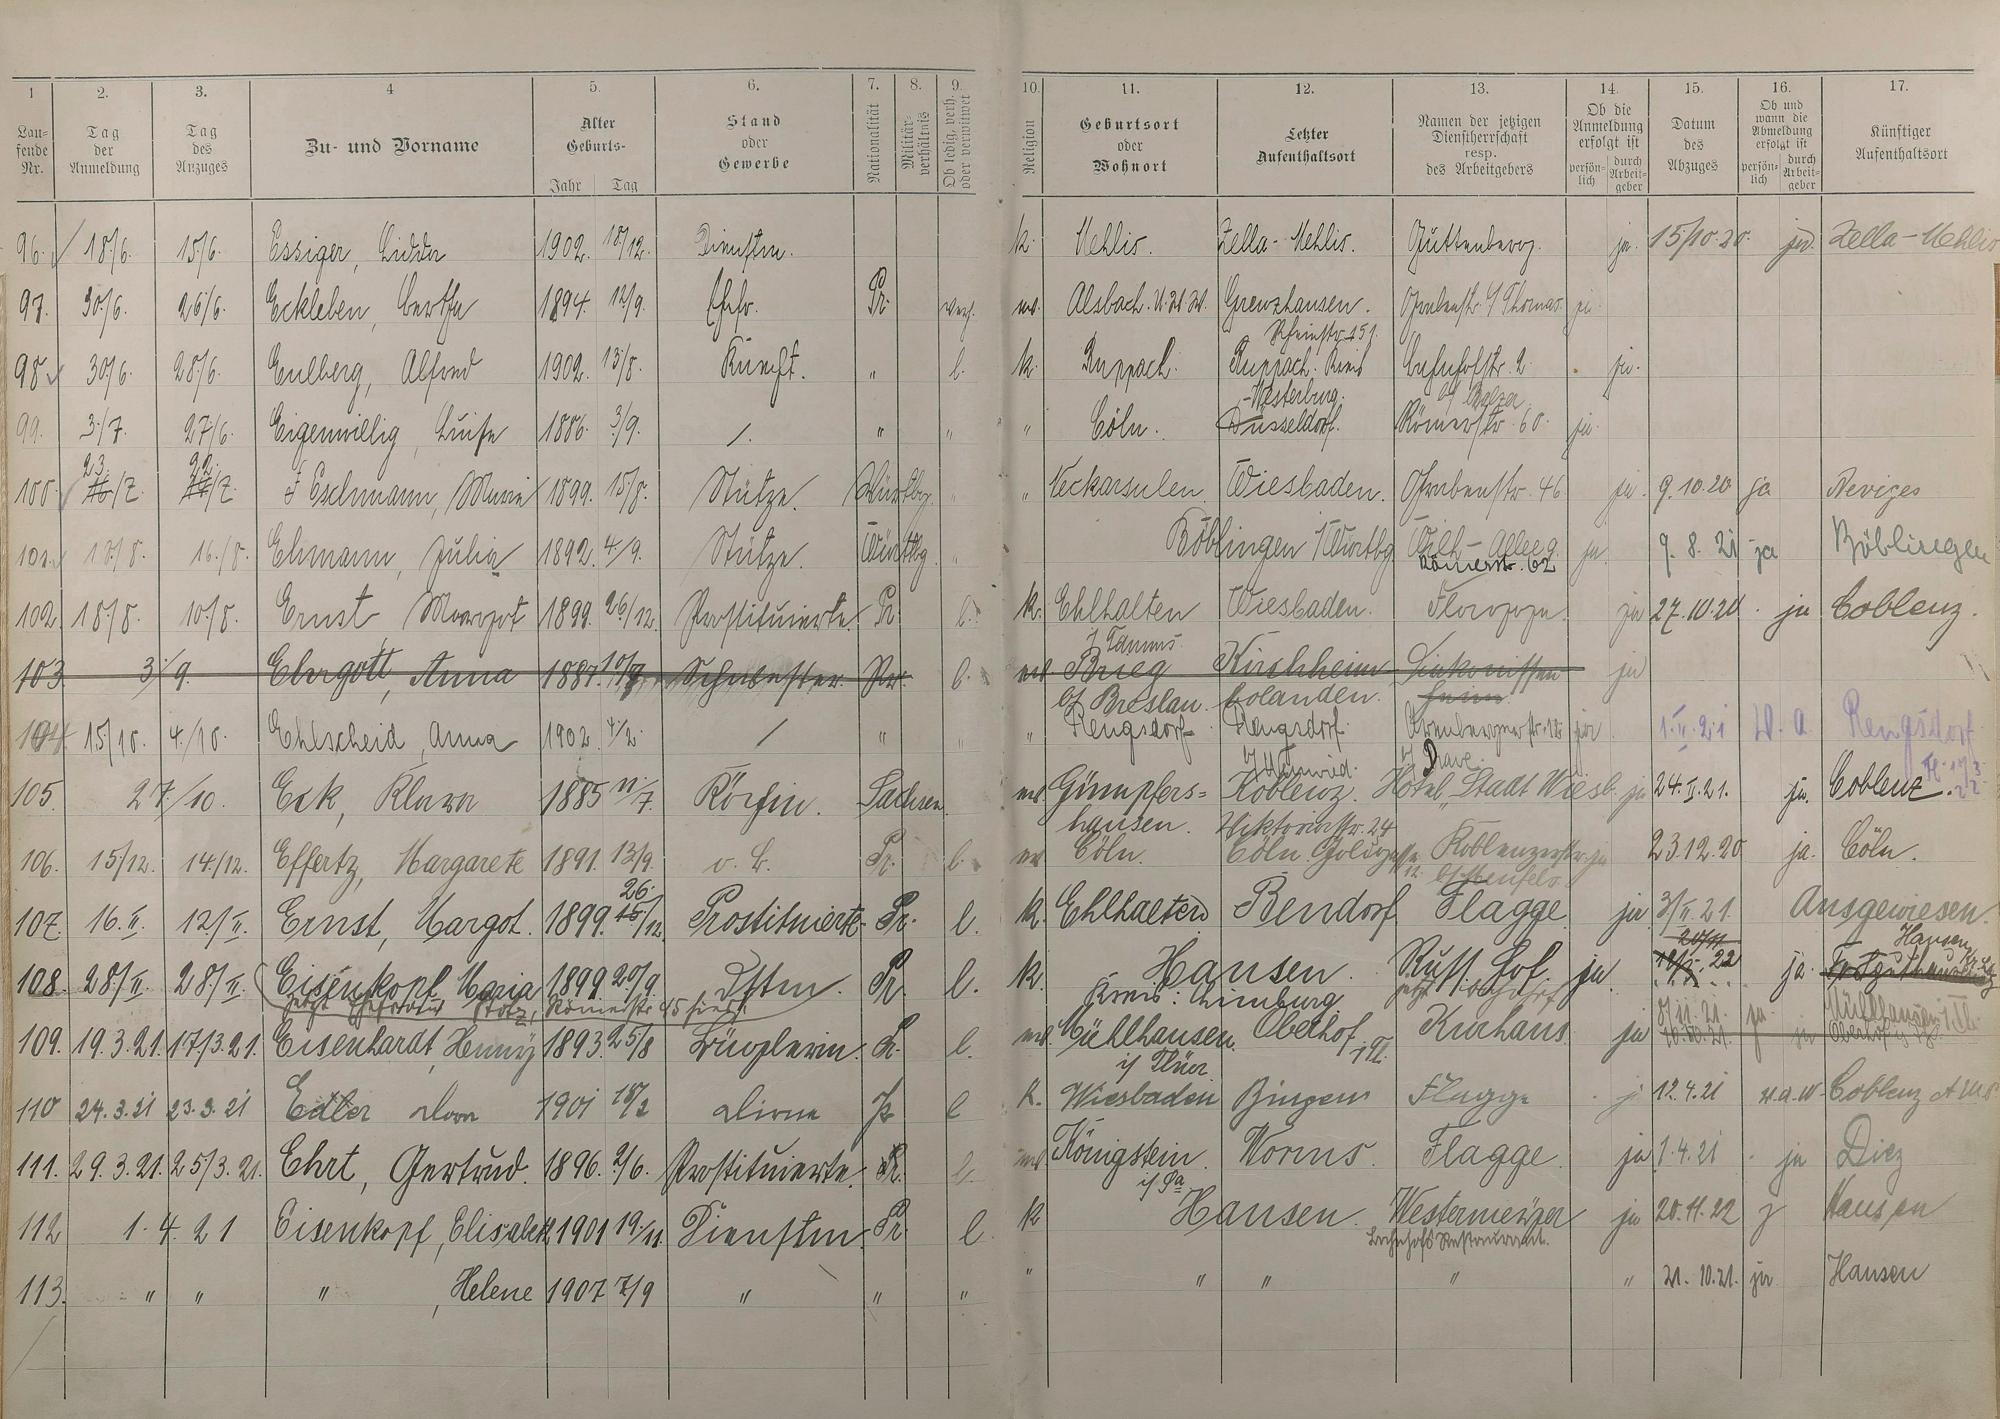 1 2. 3. 4 5. 6. 7. 8. 9. 10. 11. 12. 13. 14. 15. 16. 17.
Lau-
fende
Nr.
Tag
der
Anmeldung
Tag
des
Anzuges
Zu- und Vorname
Alter
Geburts-
Jahr Tag
Stand
oder
Gewerbe
Nationalität
Militär-
verhältnis
Ob ledig, verh.
oder verwitwet
Religion
Geburtsort
oder
Wohnort
Letzter
Aufenthaltsort
Namen der jetzigen
Dienstherrschaft
resp.
des Arbeitgebers
Ob die
Anmeldung
erfolgt ist
persön-
lich
durch
Arbeit-
geber
Datum
des
Abzuges
Ob und
wann die
Abmeldung
erfolgt ist
persön-
lich
durch
Arbeit-
geber
Künftiger
Aufenthaltsort
96. 18/6. 15/6. Essiger, 1902. 18/12. Dienstm. k. Mehlis. Zella-Mehlis. Guttenberg. ja. 15/10.20. ja. Zella-Mehlis
97. 30/6. 26/6. Eckleben, Bertha 1894. 12/9. Ehefr. Pr. verh. ev. Alsbach. U.W.W. Grenzhausen. Grabenstr. Thomas ja.
Rheinstr. 151.
98 30/6. 28/6. Eulberg, Alfred 1902. 13/8. " l. k. Ruppach. Ruppach. Kreis Bahnhofstr. 2 ja.
Westerburg.
99. 3./7. 27/6. Eigenwillig, Luise 1886. 3/9. /. " " " Cöln. Düsseldorf. Römerstr. 60. ja.
23. 22.
100. /7. /7. Eschmann, Marie 1899. 15/8. Stütze. Württbg. " " Neckarsulen. Wiesbaden. Grabenstr. 46 ja. 9.10.20 ja Neviges
101. 18/8. 16./8. Ehmann, Julia 1892. 4/9. Stütze. Württbg. " Böblingen Württbg. Wilh-Allee 9. ja. 9.8.21 ja Böblingen
Römerstr. 62
102 18/8. 10/8. Ernst Margot 1899. 26/12. Prostituierte. Pr. l. k. Ehlhalten Wiesbaden. ja 27.10.20 ja Coblenz.
Taunus.
103 3/9. Ehrgott, Anna 1887. Schwester. Pr. l. ev. Brieg Kirchheim Diakonissen ja
b/ Breslau. Bolanden. heim
104 15/10. 4./10. Ehlscheid, Anna 1902. 4/2. / " " " Rengsdorf Rengsdorf. Arenbergerstr. 12. ja 1.II.21 W. A. Rengsdorf
b/ Neuwied.
105. 27/10. Eck, Klara 1885 11/7. Köchin. Sachsen. ev. Gümpfers= Koblenz. Hotel "Stadt Wiesb. ja 24.II.21. ja. Coblenz.
hausen. Viktoriastr. 24
106. 15/12. 14/12. Effertz, Margarete 1891. 13/9. o. B. Pr. l. ev. Cöln. Cöln. Koblenzerstr. ja 23.12.20 ja. Cöln.
26.
107. 16.II. 12/II. Ernst, Margot. 1899. /12. Prostituierte. Pr. l. k. Ehlhalten Bendorf Flagge ja 3/II.21. Ausgewiesen.
108. 28/II. 28/II. Eisenkopf Maria 1899 20/9 Dstm. Pr. l. k. Hansen. Russ. Hof. ja 22 ja. Hausen
jetzt Ehefrau Stotz, Römerstr. 45 Kreis: Limburg
109. 19.3.21. 17/3.21. Eisenhardt, Henny 1893. 25/8 Büglerin. Pr. l. ev. Mühlhausen Oberhof i/Th. Kurhaus. ja 8/11.21. ja. Mühlhausen i/Th.
i/ Thür. 10.10.21. ja
110 24.3.21 23.3.21 Edler Dora 1901 18/2 Dirne Pr l k. Wiesbaden Bingen Flagge j. 12.4.21 w.a.W. Coblenz
111. 29.3.21. 25/3.21. Ehrt, Gertrud. 1896. 2/6. Prostituierte. Pr. l. ev. Königstein. Worms. Flagge. ja 1.4.21 ja Diez
i/ Sa.
112 1.4.21 Eisenkopf, Elisabeth 1901 19./11. Dienstm. Pr. l. k Hausen. Westermeyer ja 20.11.22 j Hausen
Bahnhofs Restaurant.
113. " " " , Helene 1907 7/9 " " " " " " " " 21.10.21. ja Hausen